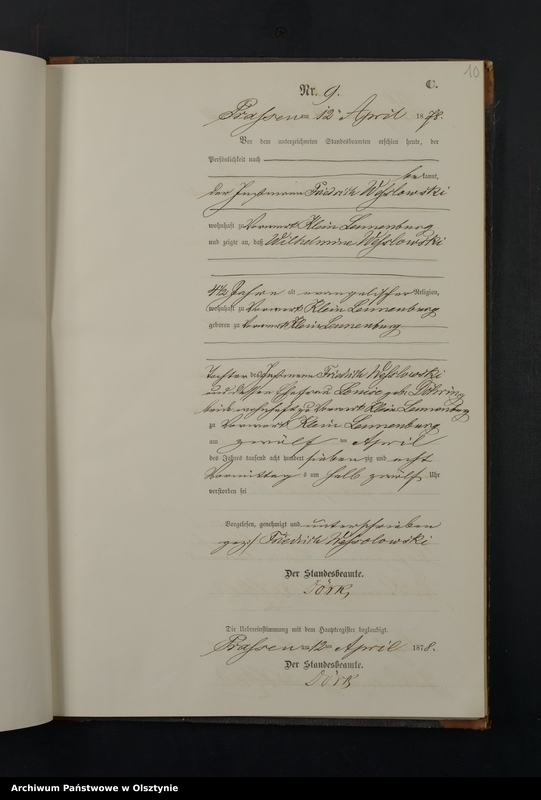 10
C.
Nr. 9.
Prassen am 12ten April 1878.
Vor dem unterzeichneten Standesbeamten erschien heute, der
Persönlichkeit nach
bekannt,
der Instmann Friedrich Wesslowski
wohnhaft zu Vorwerk Klein Leunenburg
und zeigte an, daß Wilhelmine Wesslowski
4½ Jahre alt evangelischer Religion,
wohnhaft zu Vorwerk Klein Leunenburg
geboren zu Vorwerk Klein Leunenburg
Tochter des Instmann Friedrich Wesslowski
und dessen Ehefrau Louise geb. Döhring
beide wohnhaft zu Vorwerk Klein Leunenburg
zu Vorwerk Klein Leunenburg
am zwölf ten April
des Jahres tausend acht hundert siebenzig und acht
Vormittag s um halb zwölf Uhr
verstorben sei
Vorgelesen, genehmigt und unterschrieben
gez. Friedrich Wessolowski
Der Standesbeamte.
Dörk
Die Uebereinstimmung mit dem Hauptregister beglaubigt.
Prassen am 12ten April 1878.
Der Standesbeamte.
Dörk
Archiwum Państwowe w Olsztynie